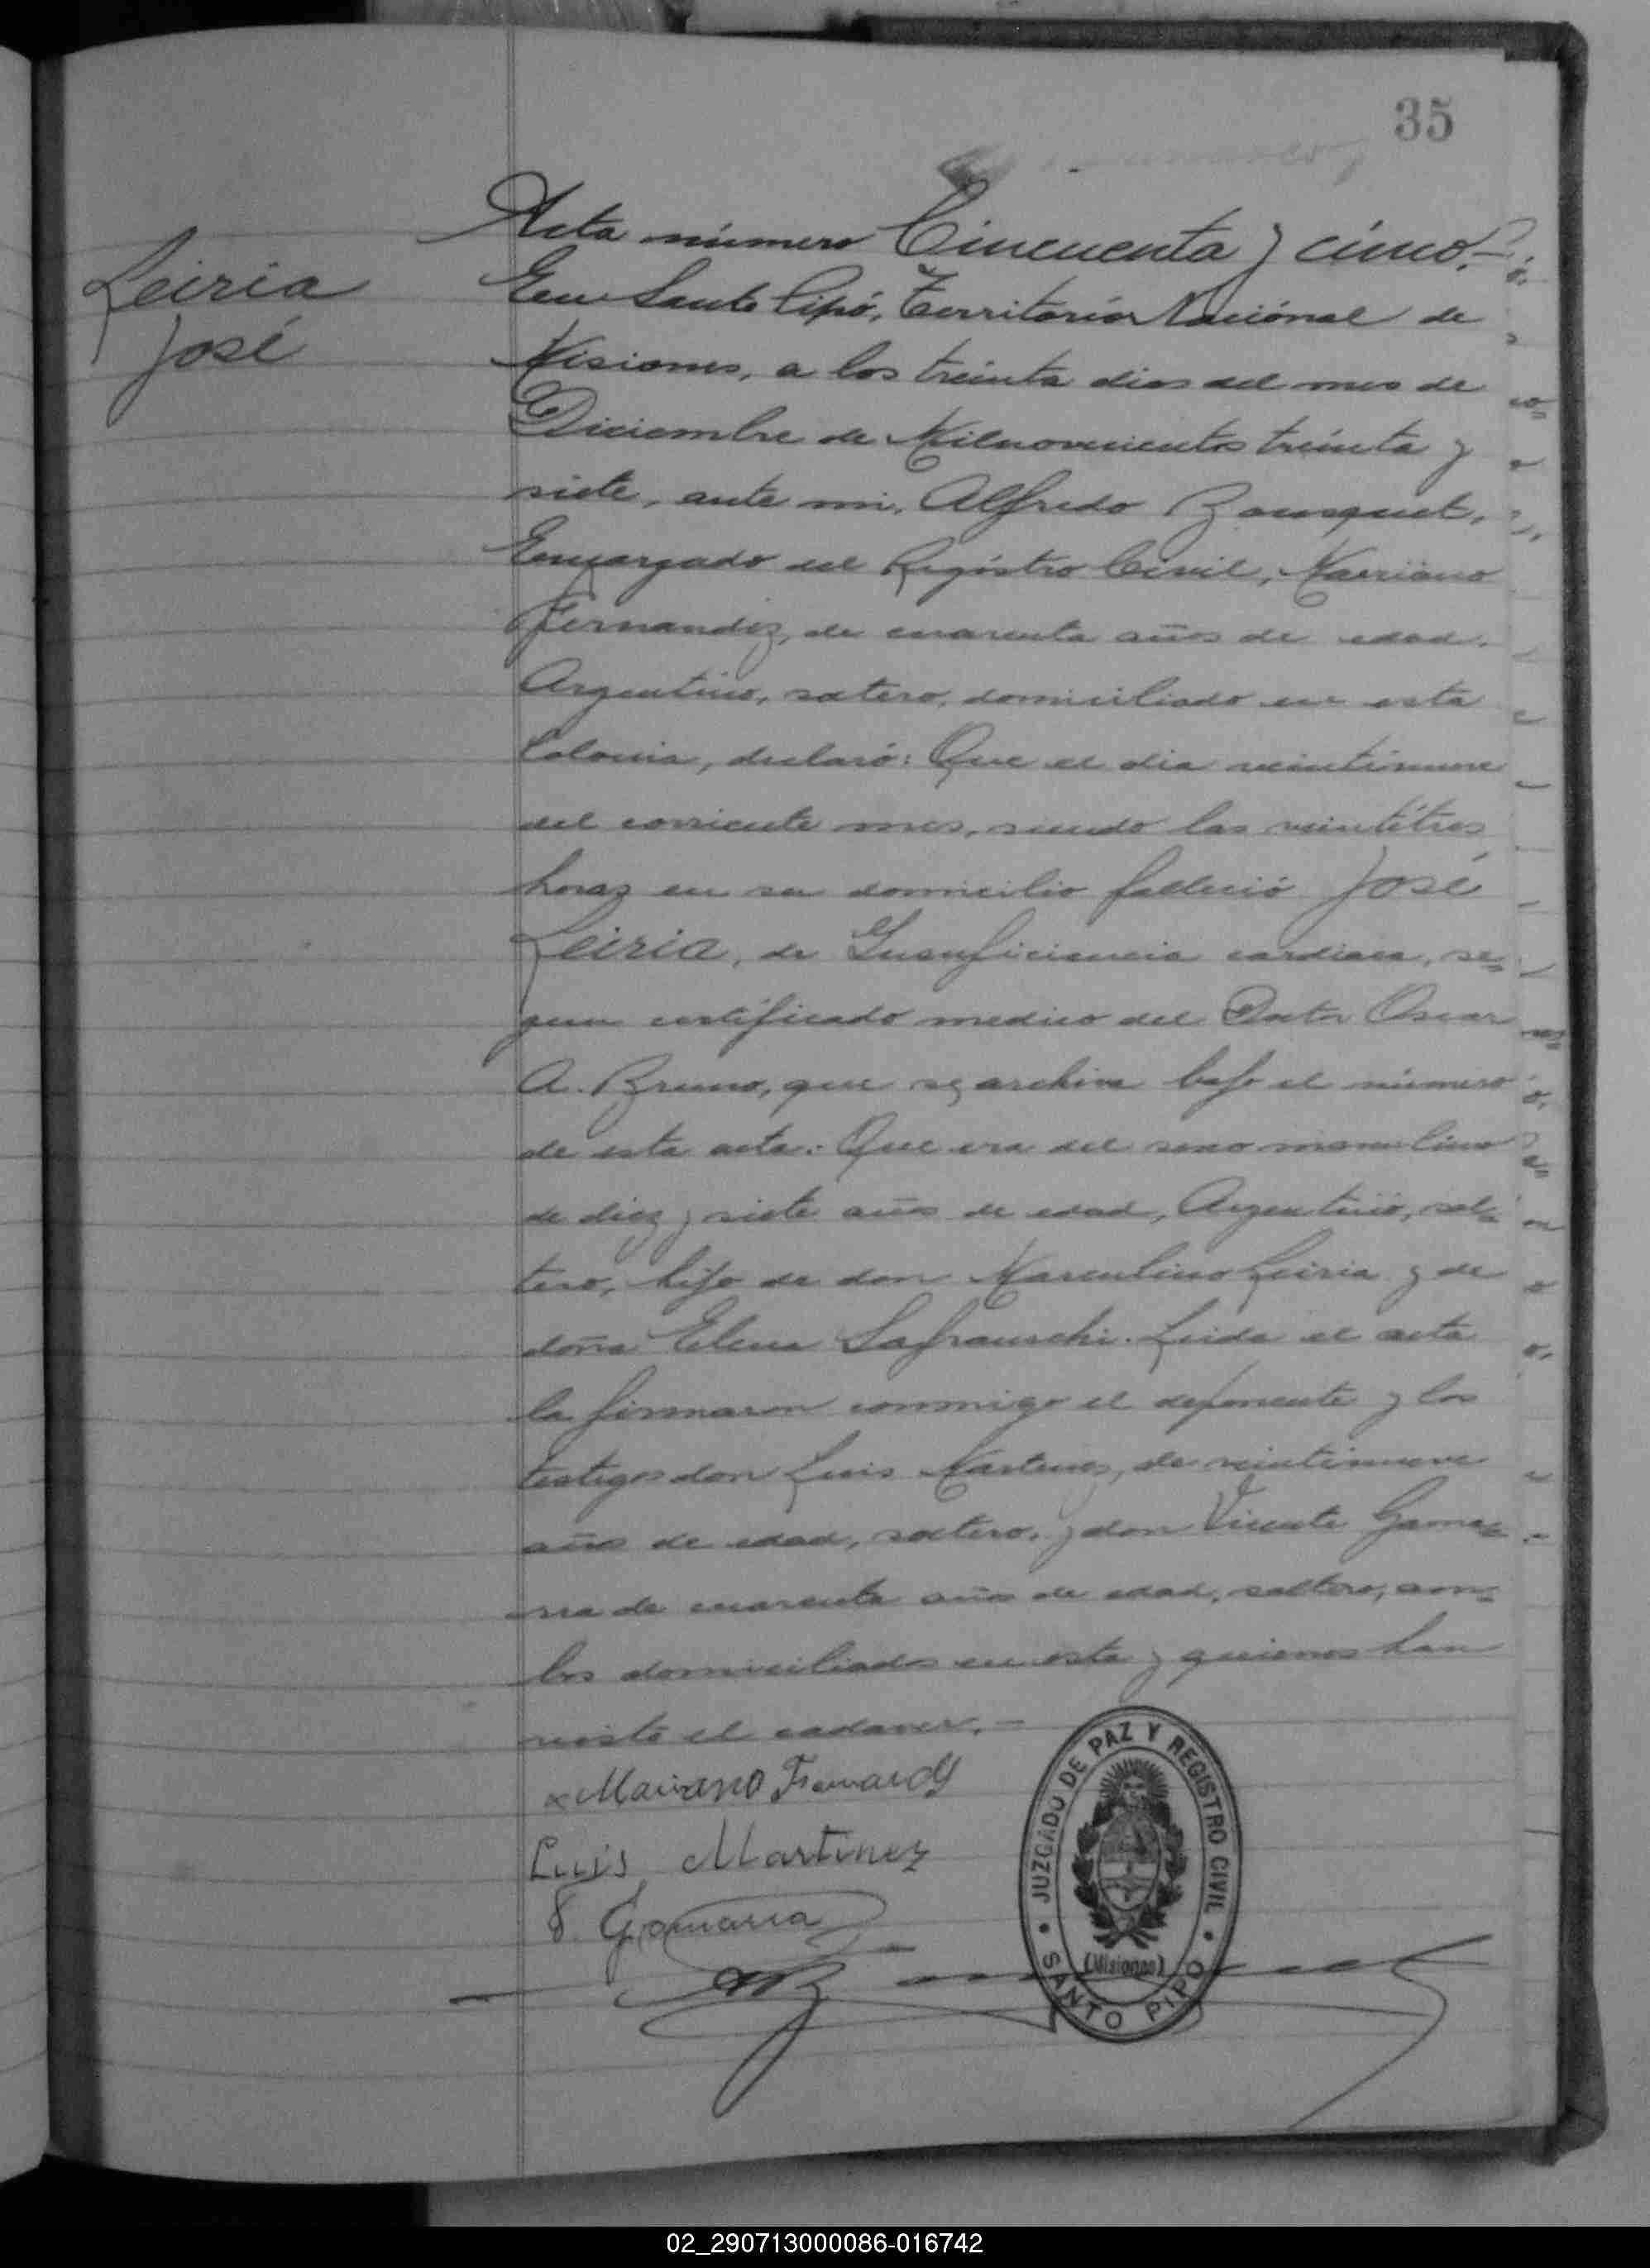 35
Leiria
José
Acta número Cincuenta y cinco.-
En Santo Pipó, Territorio Nacional de
Misiones, a los treinta dias del mes de
Diciembre de Milnovecientos treinta y
siete, ante mi, Alfredo Bousquet,
Encargado del Registro Civil, Mariano
Fernandez, de cuarenta años de edad,
Argentino, soltero, domiciliado en esta
Colonia, declaró: Que el dia veintinueve
del corriente mes, siendo las veintitres
horas en su domicilio falleció José
Leiria, de Insuficiencia cardiaca, se=
gun certificado medico del Doctor Oscar
A. Bruno, que se archiva bajo el número
de esta acta: Que era del sexo masculino
de diez y siete años de edad, Argentino, sol=
tero, hijo de don Marculino Leiria y de
doña Elena Safranschi. Leida el acta
la firmaron conmigo el deponente y los
testigos don Luis Martinez, de veintinueve
años de edad, soltero, y don Vicente Gama=
rra de cuarenta años de edad, soltero, am=
bos domiciliados en esta y quienes han
visto el cadaver.-
x Mariano Fernandez
Luis Martinez
V. Gamarra
JUZGADO DE PAZ Y REGISTRO CIVIL
(Misiones)
SANTO PIPO
02_290713000086-016742